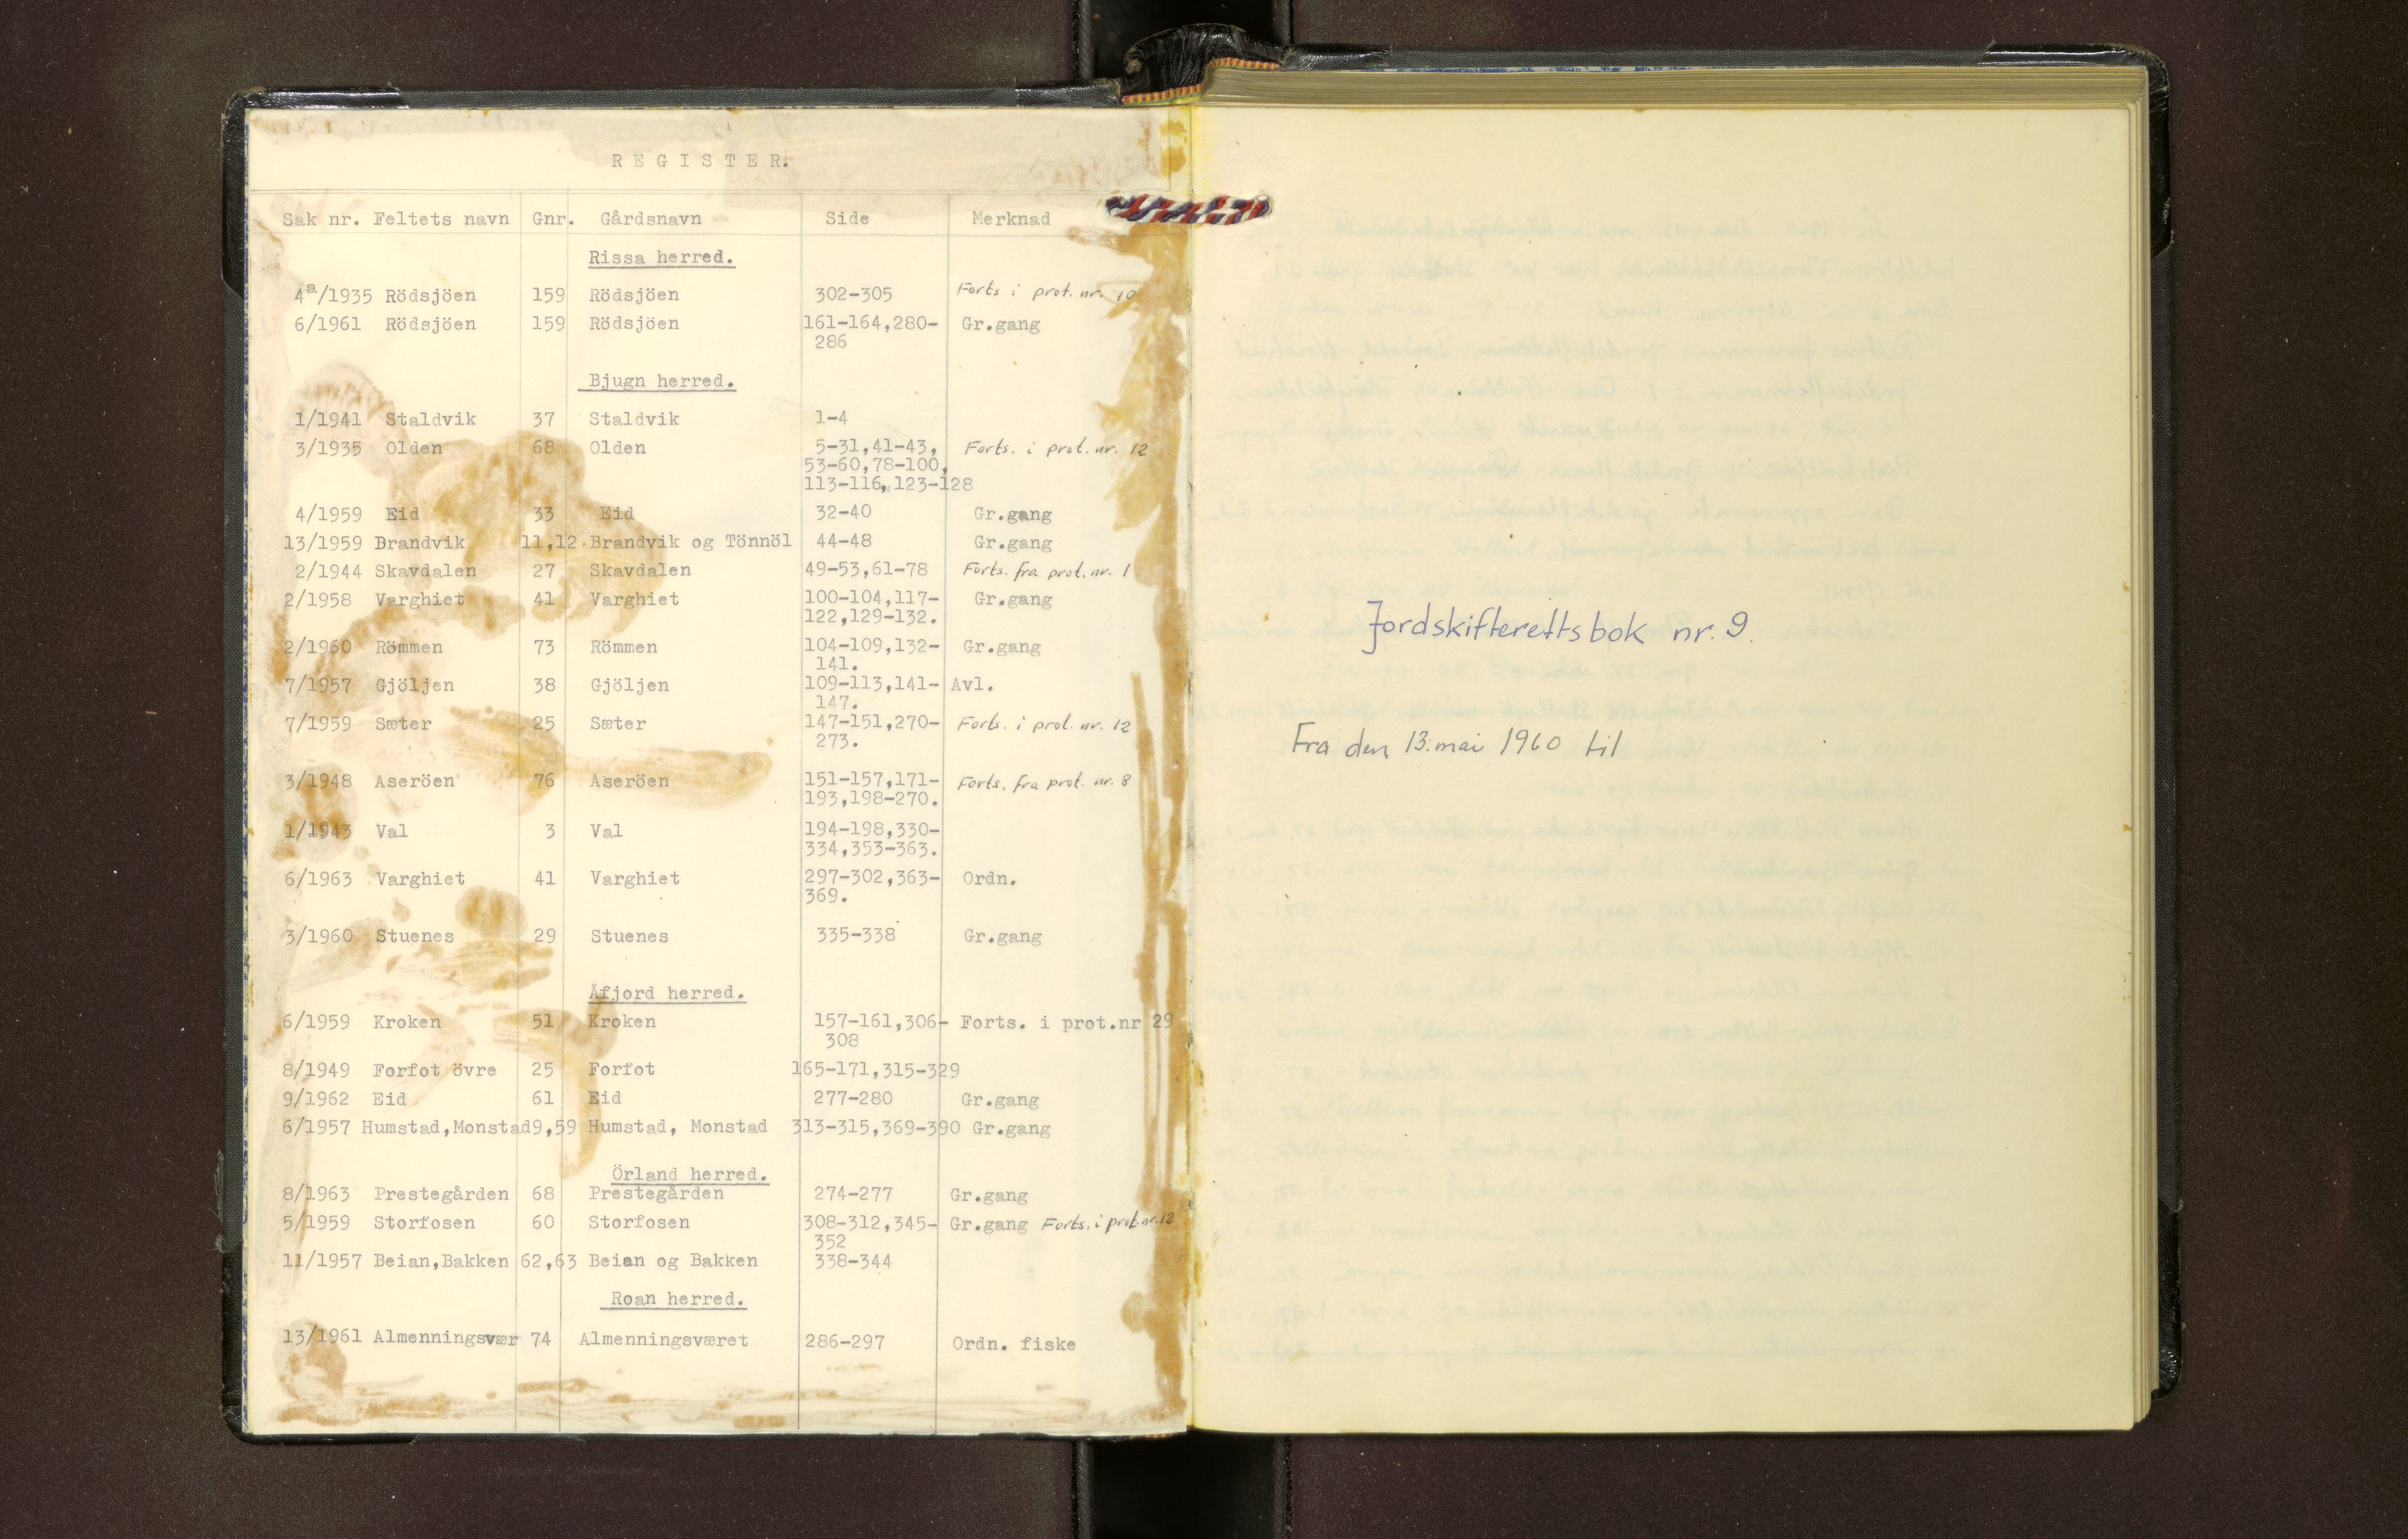 REGISTER.
Sak nr. Feltets navn Gnr. Gårdsnavn Side Merknad
Rissa herred.
4a/1935 Rödsjöen 159 Rödsjöen 302-305 Forts i prot. nr. 10
6/1961 Rödsjöen 159 Rödsjöen 161-164,280- Gr.gang
286
Bjugn herred.
1/1941 Staldvik 37 Staldvik 1-4
3/1935 Olden 68 Olden 5-31,41-43, Forts. i prot. nr. 12
53-60,78-100,
113-116,123-128
4/1959 Eid 33 Eid 32-40 Gr.gang
13/1959 Brandvik 11,12 Brandvik og Tönnöl 44-48 Gr.gang
2/1944 Skavdalen 27 Skavdalen 49-53,61-78 Forts. fra prot. nr. 1
2/1958 Varghiet 41 Varghiet 100-104,117- Gr.gang
122,129-132.
2/1960 Römmen 73 Römmen 104-109,132- Gr.gang
141.
7/1957 Gjöljen 38 Gjöljen 109-113,141- Avl.
147.
7/1959 Sæter 25 Sæter 147-151,270- Forts. i prot. nr. 12
273.
3/1948 Aseröen 76 Aseröen 151-157,171- Forts. fra prot. nr. 8
193,198-270.
1/1943 Val 3 Val 194-198,330-
334,353-363.
6/1963 Varghiet 41 Varghiet 297-302,363- Ordn.
369.
3/1960 Stuenes 29 Stuenes 335-338 Gr.gang
Åfjord herred.
6/1959 Kroken 51 Kroken 157-161,306- Forts. i prot.nr 29
308
8/1949 Forfot övre 25 Forfot 165-171,315-329
9/1962 Eid 61 Eid 277-280 Gr.gang
6/1957 Humstad,Monstad 9,59 Humstad, Monstad 313-315,369-390 Gr.gang
Örland herred.
8/1963 Prestegården 68 Prestegården 274-277 Gr.gang
5/1959 Storfosen 60 Storfosen 308-312,345- Gr.gang Forts. i prot.nr.12
352
11/1957 Beian,Bakken 62,63 Beian og Bakken 338-344
Roan herred.
13/1961 Almenningsvær 74 Almenningsværet 286-297 Ordn. fiske
Jordskifterettsbok nr. 9.
Fra den 13. mai 1960 til